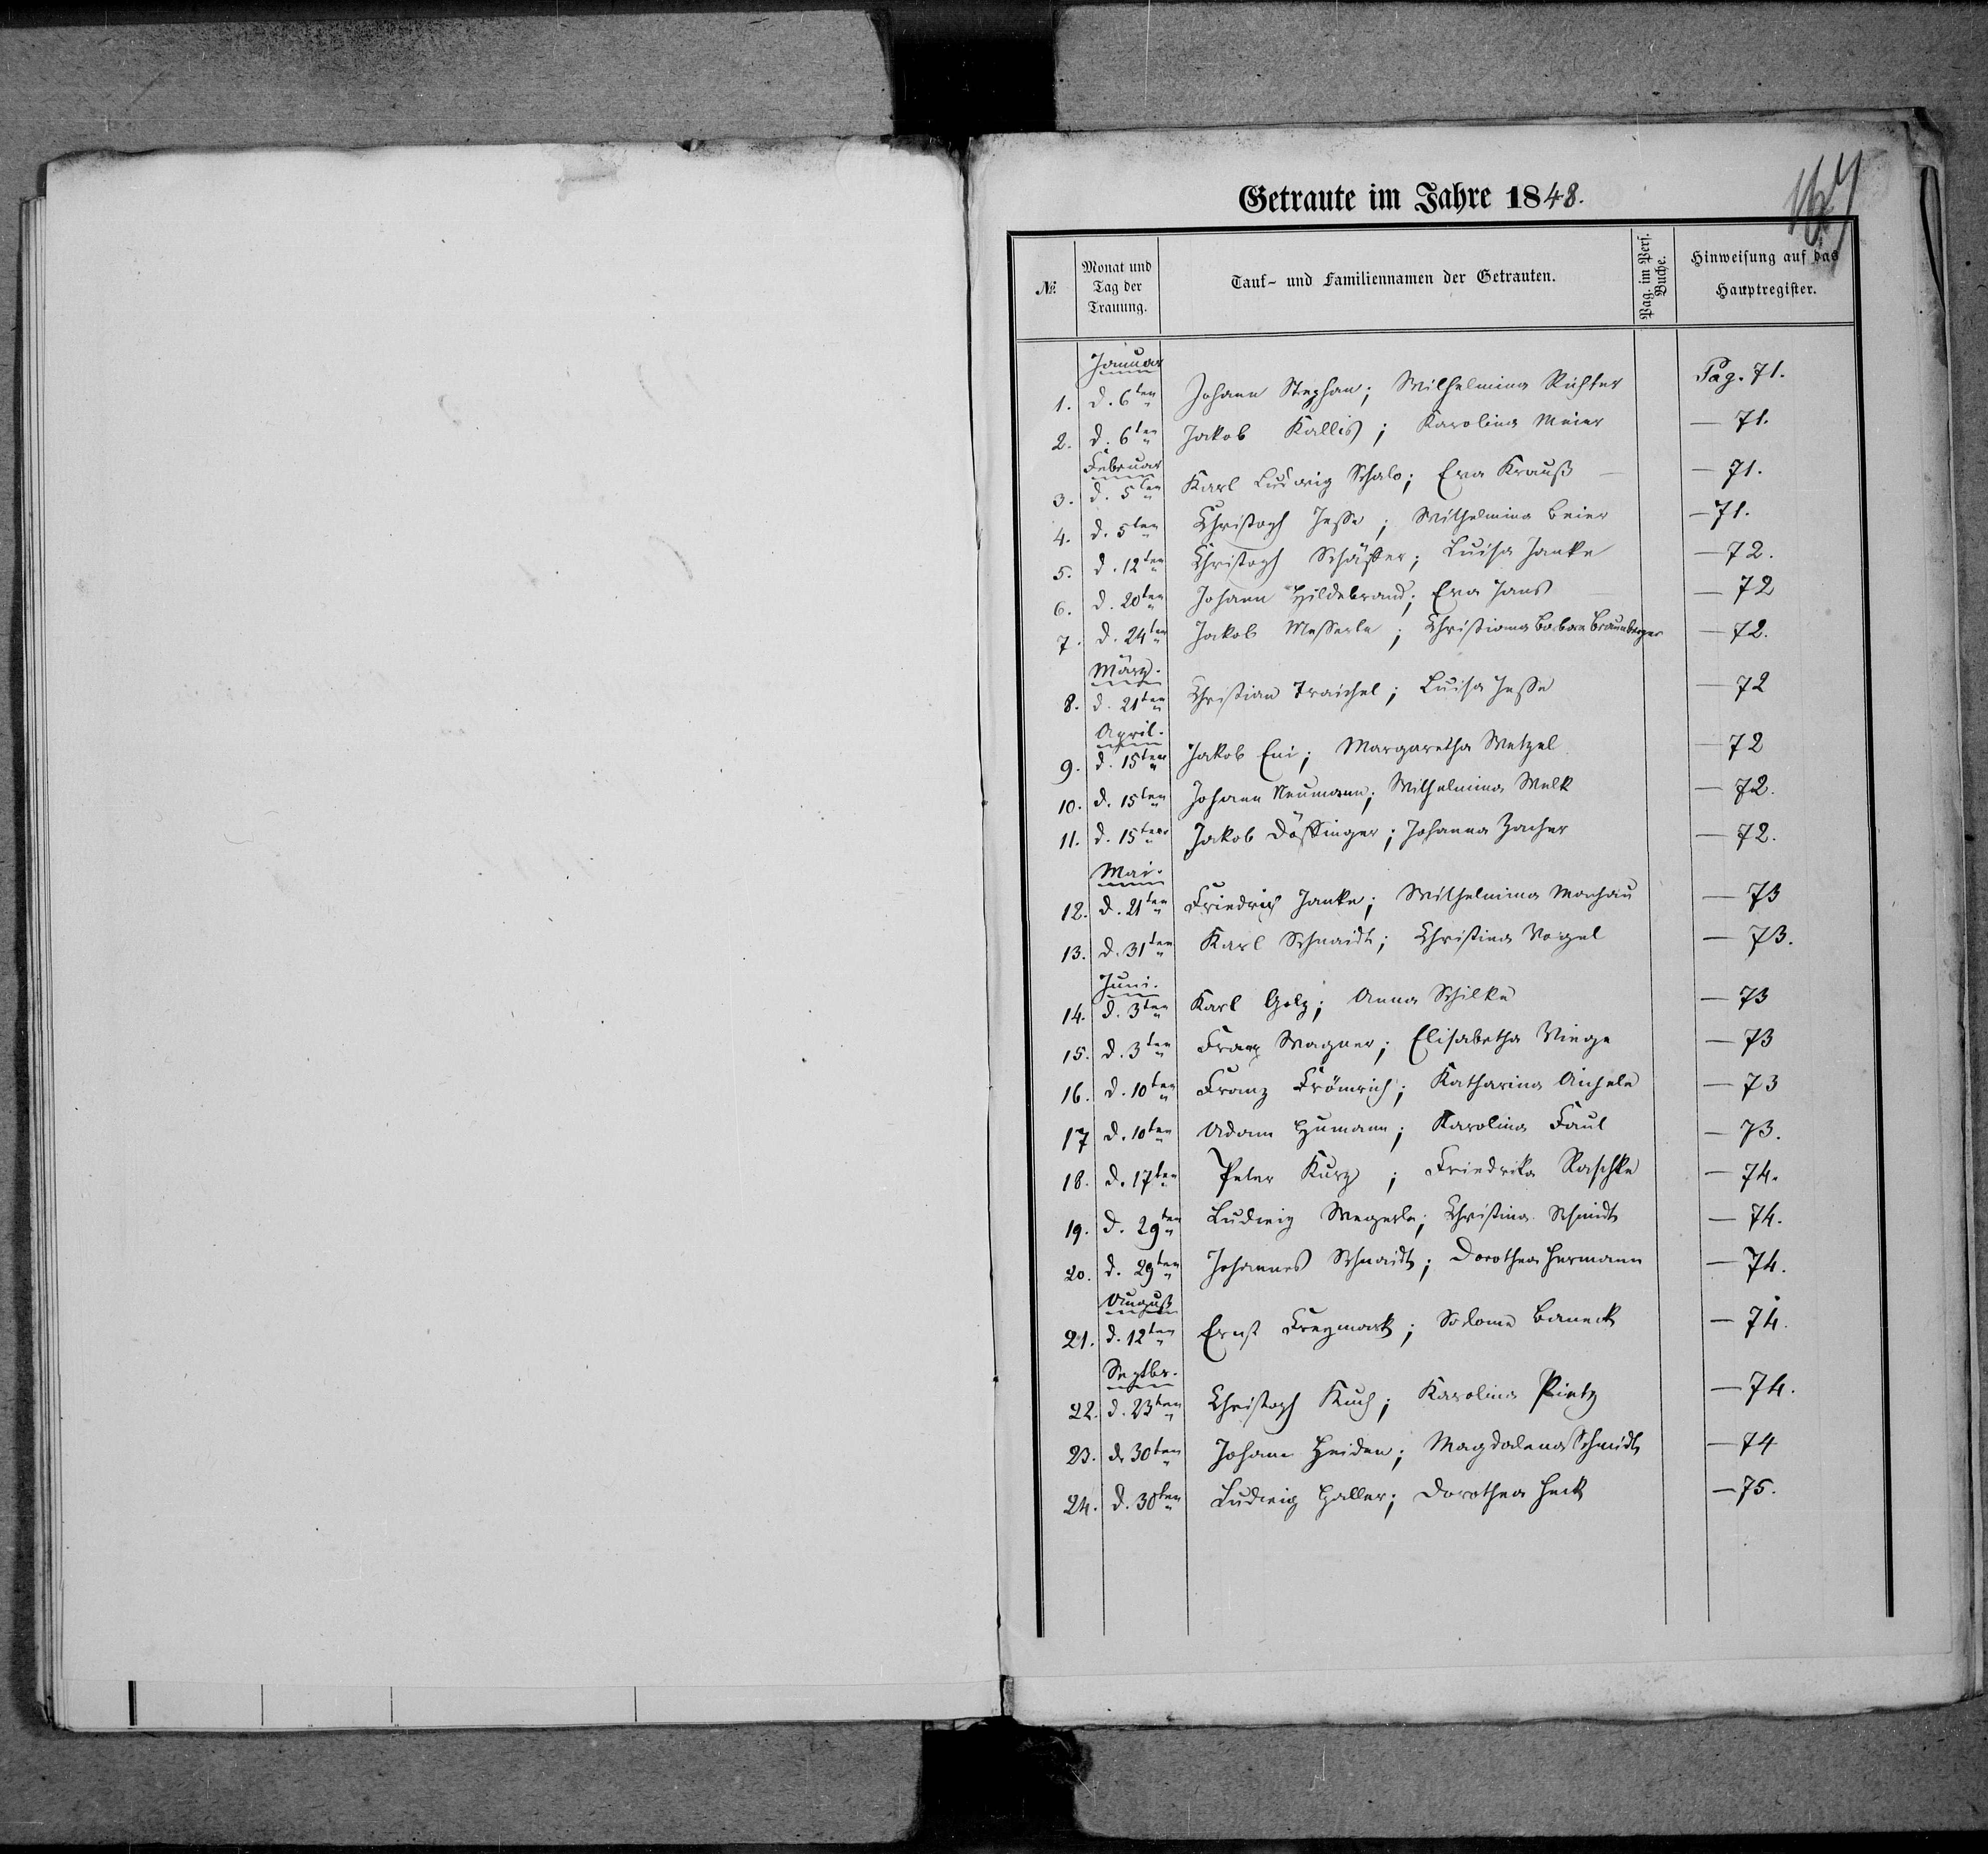 167
Getraute im Jahre 1848.
№.
Monat und
Tag der
Trauung.
Tauf- und Familiennamen der Getrauten.
Pag. im Pers.
Buche.
Hinweisung auf das
Hauptregister.
Januar
1. d. 6ten Johann Stephan; Wilhelmina Richter Pag. 71.
2. d. 6ten Jakob Kallis; Karolina Meier — 71.
Februar
3. d. 5ten Karl Ludwig Schalo; Eva Krauß — 71.
4. d. 5ten Christoph Jesse; Wilhelmina Beier — 71.
5. d. 12ten Christoph Schäffer; Luisa Janke — 72.
6. d. 20ten Johann Hildebrand; Eva Jans — 72
7. d. 24ten Jakob Messerle; Christiana Barbara Braunberger — 72.
März.
8. d. 21ten Christian Traichel; Luisa Jesse — 72
April.
9. d. 15ten Jakob Eni; Margaretha Wetzel — 72
10. d. 15ten Johann Neumann; Wilhelmina Welk — 72.
11. d. 15ten Jakob Döffinger; Johanna Zacher — 72.
Mai.
12. d. 21ten Friedrich Janke; Wilhelmina Machau — 73
13. d. 31ten Karl Schnaidt; Christina Vogel — 73.
Juni.
14. d. 3ten Karl Golz; Anna Schilke — 73
15. d. 3ten Franz Wagner; Elisabetha — 73
16. d. 10ten Franz Frömrich; Katharina Aichele — 73
17 d. 10ten Adam Humann; Karolina Faul — 73.
18. d. 17ten Peter Kurz; Friedrika Raschke — 74.
19. d. 29ten Ludwig Wegerle; Christina Schmidt — 74.
20. d. 29ten Johannes Schnaidt; Dorothea Hermann — 74.
August
21. d. 12ten Ernst Freymark; Salome Baneck — 74.
Septbr.
22. d. 23ten Christoph Kuch; Karolina Pietz — 74.
23. d. 30ten Johann Heiden; Magdalena Schmidt — 74
24. d. 30ten Ludwig Haller; Dorothea Heck — 75.